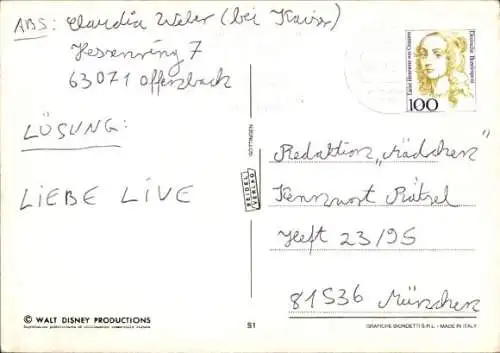 ABS: Claudia Weber (bei Kaiser)
Hessenring 7
63071 Offenbach
LÖSUNG:
LIEBE LIVE
Deutsche Bundespost
100
GÖTTINGEN
REIDEL
VERLAG
Redaktion „Mädchen"
Kennwort Rätsel
Heft 23/95
81536 München
© WALT DISNEY PRODUCTIONS
S1
GRAFICHE BIONDETTI S.R.L. - MADE IN ITALY